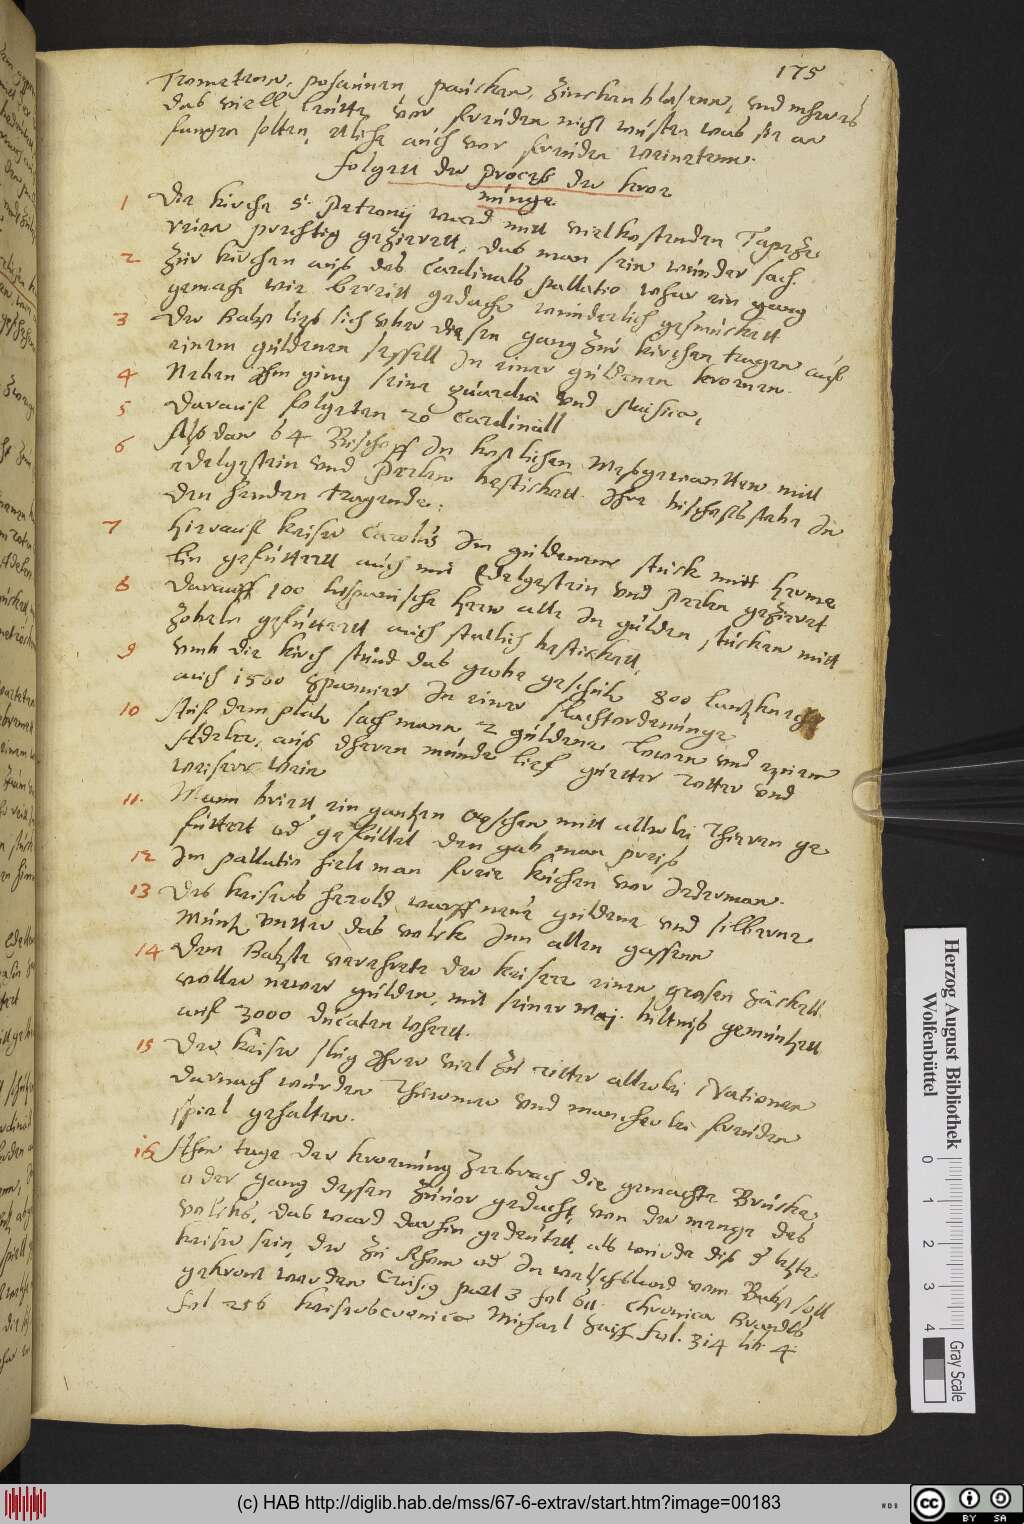 175
Trometenn, posaunen, paucken, Zinckenblasenn, vnd mheres
das viell Leutte vor freuden nicht wusten was sie an
fangen solten, etliche auch vor freuden weinetenn.
folgett der proceß der kroe
nunge.
1 Die kirche S. Petronij ward mitt vielkostenden Tapeze
reien prechtig gezierett, das man sein wunder sach.
2 Zur kirchen auß des Cardinals pallatio wher ein gang
gemacht wie bereitt gedacht wunderlich geschmuckett
3 Der Babst ließ sich vber diesen gang zur kirchen tragen auff
einem guldenen sessell In einer guldenen kronen.
4 Neben Ihm ging seine guardia vnd
5 Darauff folgeten 20 Cardinall
6 Alß dan 64 Bischoff In kostlichen Meßgewantten mitt
edelgestein vnd Perlen bestickett Ihre bischoffsstebe In
den henden tragende.
7 Hierauff keiser Carolus Im guldenem stuck mitt Herme
lin gefutterett auch mit Edelgestein vnd Perlen gezieret
8 Darauff 100 hispanische Hern alle In gulden stucken mitt
Zobeln gefutterett auch statlich bestickett.
9 vmb die kirch stund das grobe geschutz 800 lantzknecht
auch 1500 Spannier In einer slachtordenunge
10 Auff dem platz sach mann 2 guldene lewen vnd einem
Adeler, auß dheren munde lieff gutter rotter vnd
weisser Wein
11. Mann briett ein gantzen Ochsen mitt allerlei Thieren ge
futtert od gefullet den gab man preiß
12 Im pallatio hielt man freie kuchen vor Iederman.
13 Des keisers herold warff neue guldene vnd silberne
Muntz vntter das volck Inn allen gassenn
14 Dem Babste verehrete der keiser einen grosen Seckell
voller newer gulden, mit seiner Maj. biltniß gemuntzett
auff 3000 ducaten whertt.
15 Der keiser slug Ihrer viel zu ritter allerlei Nationen
darnach wurden Thurner vnd mancherlei freuden
spiel gehalten.
16 Ahm tage der kroenung Zerbrach die gemachte Brucke
oder gang dessen zuuor gedacht, von der menge des
volcks, das ward darhin gedeutett, als wurde diß d letzte
keiser sein, der zu Rhom od In welschland vom Babst soll
gekront werden Crisig part 3 fol 611 Chronica
fol 256 keiserscronica Michael fol. 314 lib. 4.
Herzog August Bibliothek
Wolfenbüttel
0 1 2 3 4
Gray Scale
(c) HAB http://diglib.hab.de/mss/67-6-extrav/start.htm?image=00183
WDB
cc BY SA